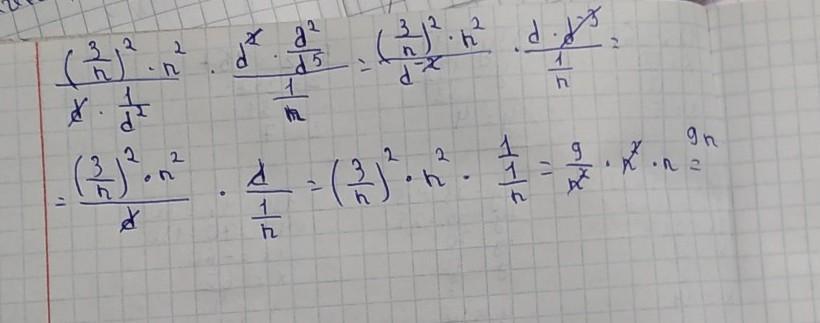 (3/n)² · n² / (d · 1/d²) · (d² · d²/d⁵) / (1/n) = (3/n)² · n² / d⁻² · (d · d⁻³) / (1/n) =
= (3/n)² · n² / d · d / (1/n) = (3/n)² · n² · 1 / (1/n) = 9/n² · n² · n = 9n